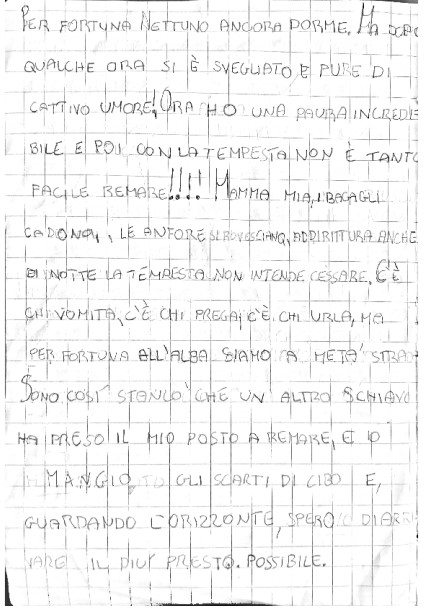 PER FORTUNA NETTUNO ANCORA DORME, MA DOPO
QUALCHE ORA SI È SVEGLIATO E PURE DI
CATTIVO UMORE! ORA HO UNA PAURA INCREDI
BILE E POI CON LA TEMPESTA NON È TANTO
FACILE REMARE!!!! MAMMA MIA, I BAGAGLI
CADONO, LE ANFORE SI ROVESCIANO, ADDIRITTURA ANCHE
DI NOTTE LA TEMPESTA NON INTENDE CESSARE. C'È
CHI VOMITA, C'È CHI PREGA, C'È CHI URLA, MA
PER FORTUNA ALL'ALBA SIAMO A METÀ STRA
SONO COSÌ STANCO CHE UN ALTRO SCHIAVO
HA PRESO IL MIO POSTO A REMARE, E IO
MANGIO GLI SCARTI DI CIBO E,
GUARDANDO L'ORIZZONTE, SPERO DI ARRI
VARE IL PIU' PRESTO POSSIBILE.